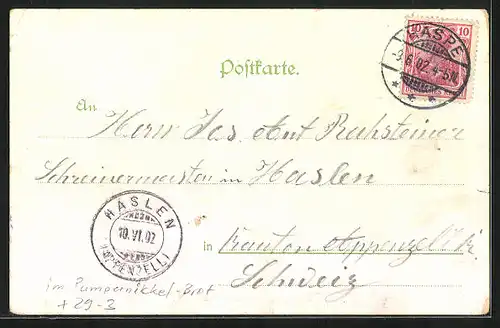 10 10
HASPE
-9.6.02.4-5N.
Postkarte.
An
Herrn Jos. Ant Ruhsteiner
Schreinermeister in Haslen
HASLEN
10.VI.02
(APPENZELL)
in Kanton Appenzell
Schweiz
im Pumpernikkel-Brot
+ 29-3